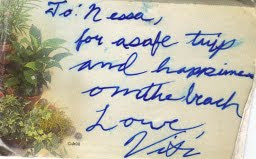 To: Nessa,
for a safe trip
and happiness
on the beach
Love
Viti